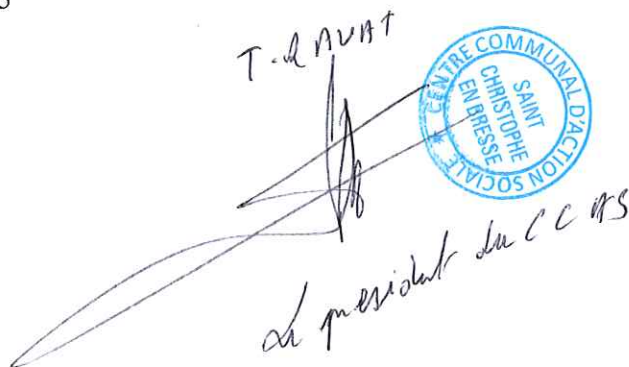 T. RAVAT
CENTRE COMMUNAL D'ACTION SOCIALE *
SAINT
CHRISTOPHE
EN BRESSE
Le president du CCAS